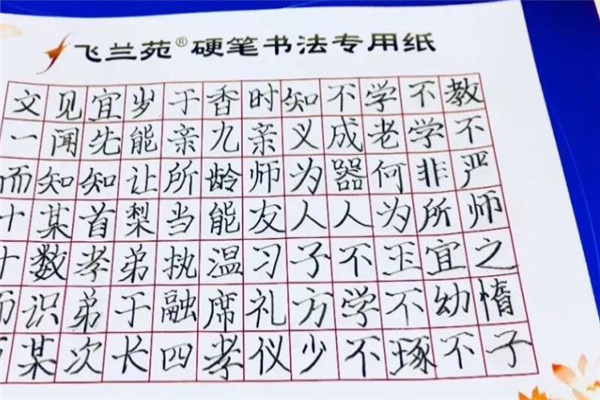 飞兰苑®硬笔书法专用纸
教不严师之惰子
不学非所宜幼不
学老何为玉不琢
不成器人不学不
知义为人子方少
时亲师友习礼仪
香九龄能温席孝
于亲所当执融四
岁能让梨弟于长
宜先知首孝弟次
见闻知某数识某
文一而十十而